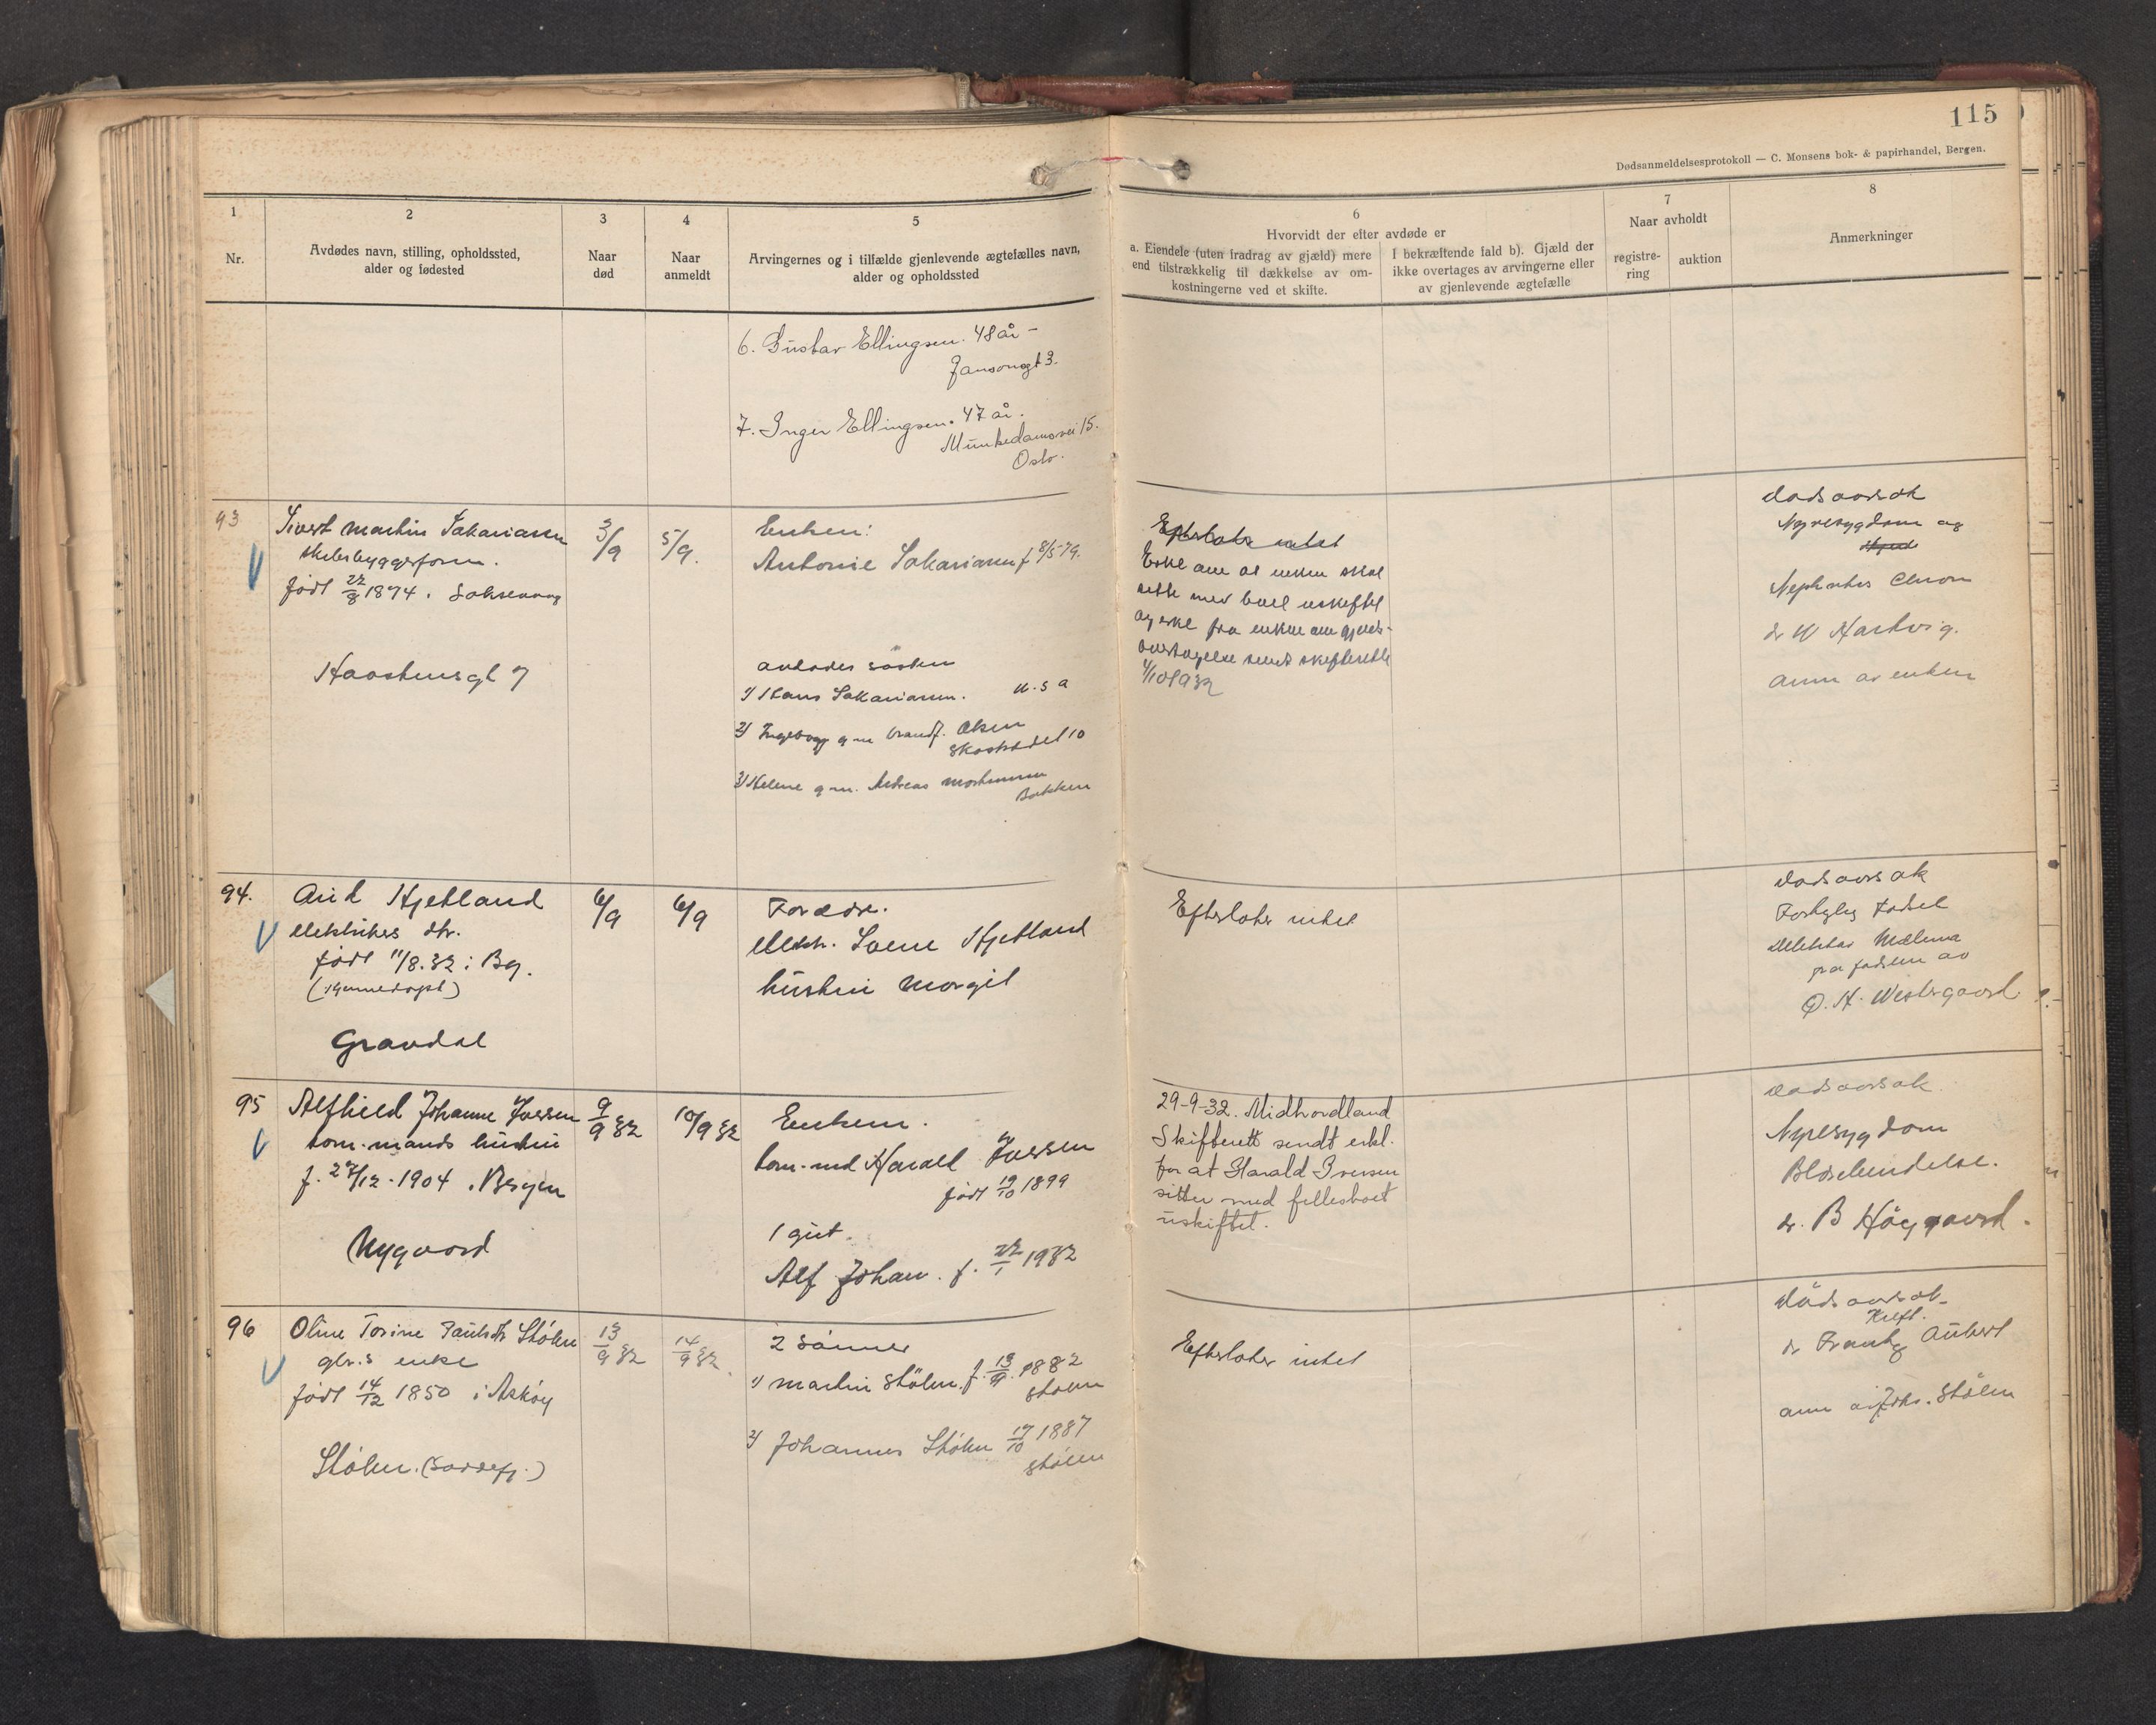 115
Dødsanmeldelsesprotokoll — C. Monsens bok- & papirhandel, Bergen.
1
Nr.
2
Avdødes navn, stilling, opholdssted,
alder og fødested
3
Naar
død
4
Naar
anmeldt
5
Arvingernes og i tilfælde gjenlevende ægtefælles navn,
alder og opholdssted
6
Hvorvidt der efter avdøde er
a. Eiendele (uten fradrag av gjæld) mere
end tilstrækkelig til dækkelse av om-
kostningerne ved et skifte.
I bekræftende fald b). Gjæld der
ikke overtages av arvingerne eller
av gjenlevende ægtefælle
7
Naar avholdt
registre-
ring
auktion
8
Anmerkninger
6. Gustav Ellingsen. 48 år –
Jansonsgt 3.
7. Inger Ellingsen. 47 år.
Munkedamsvei 15.
Oslo.
93
Sivert Martin Sakariassen
skibsbyggerform.
født 22/8 1874.
Haostensgt 7
3/9
5/9.
Enken:
Antonie Sakariassen f 8/5-79.
avdødes søsken
1) Hans Sakariassen. U.S.A
2) Ingeborg g.m. Olsen
Skostredet 10
3) Helene g.m. Andreas Mortensen
Bakken
Efterlater intet
Erkl. om at enken skal
sitte med boet uskiftet
og erkl fra enken om gjelds-
overtagelse sendt skifteretten
1/10 1932
dødsaarsak
Nyresygdom og
Nephritis Chron
dr W Hartvig.
anm av enken
94.
Arid Hjetland
elektrikers dtr.
født 11/8.32 i Bg.
(hjemmedøpt)
Gravdal
6/9
6/9
Foreldre.
elektr. Hjetland
hustru Margit
Efterlater intet
dødsaarsak
fødsel
Melena
fødselen av
O. H. Westergaard
95
Alfhild Johanne Iversen
kom.mands hustru
f. 27/12-1904. Bergen
Nygaard
9/9 32
10/9 32
Enkem.
kom.md Harald Iversen
født 19/10 1899
1 gut.
Alf Johan. f. 22/1 1932
29-9-32. Midhordland
Skifterett sendt erkl.
for at Harald Iversen
sitter med fellesboet
uskiftet.
dødsaarsak
Nyresygdom
dr. B Høygaard.
96
Oline Torine Paulsdtr Stölen
gbr.s enke
født 14/12 1850 i Askøy
Stölen.
13/9 32
14/9 32.
2 sønner
1) Martin Stölen. f. 13/9 1882
Stölen
2) Johannes Stölen 17/10 1887
Stölen
Efterlater intet
Dødsaarsak
Kreft.
dr Frantz Aubert
anm av Johs. Stölen